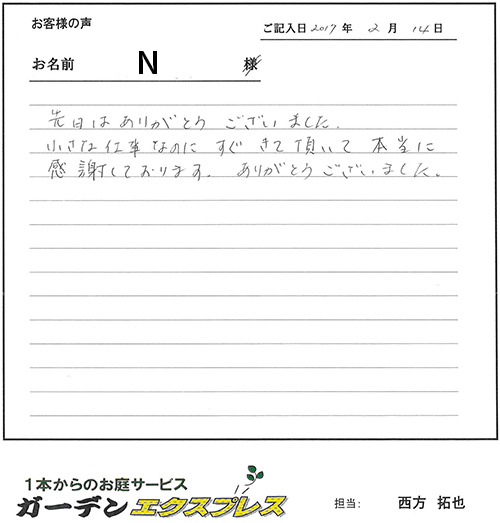 お客様の声
ご記入日 2017 年 2 月 14 日
お名前 N 様
先日は ありがとう ございました.
小さな仕事 なのに すぐ きて 頂いて 本当に
感謝しております. ありがとうございました.
1本からのお庭サービス
ガーデンエクスプレス
担当: 西方 拓也